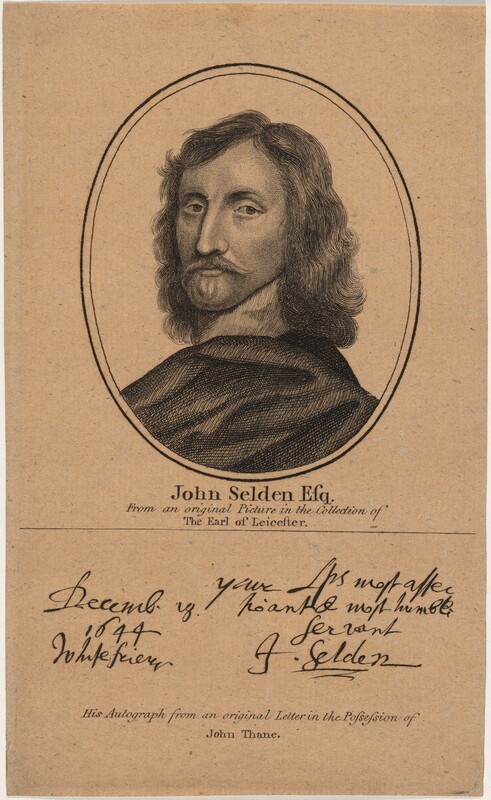 John Selden Eſq.
From an original Picture in the Collection of
The Earl of Leiceſter.
your Lps moſt affec
Decemb. 13. tionat & moſt humble
1644 Servant
Whitefriers J. Selden
His Autograph from an original Letter in the Poſſeſsion of
John Thane.